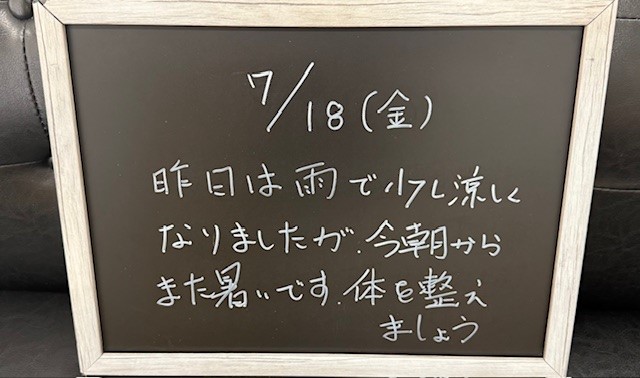 7/18(金)
昨日は雨で少し涼しく
なりましたが、今朝から
また暑いです、体を整え
ましょう